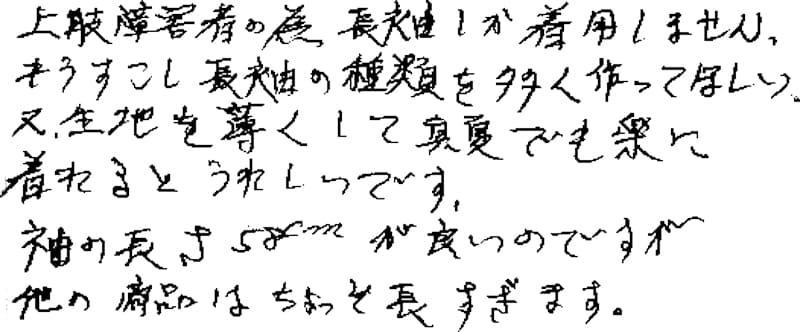 上肢障害者の為、長袖しか着用しません、
もうすこし長袖の種類を多く作ってほしい。
又、生地を薄くして真夏でも楽に
着れるとうれしいです。
袖の長さ58cmが良いのですが
他の商品はちょっと長すぎます。